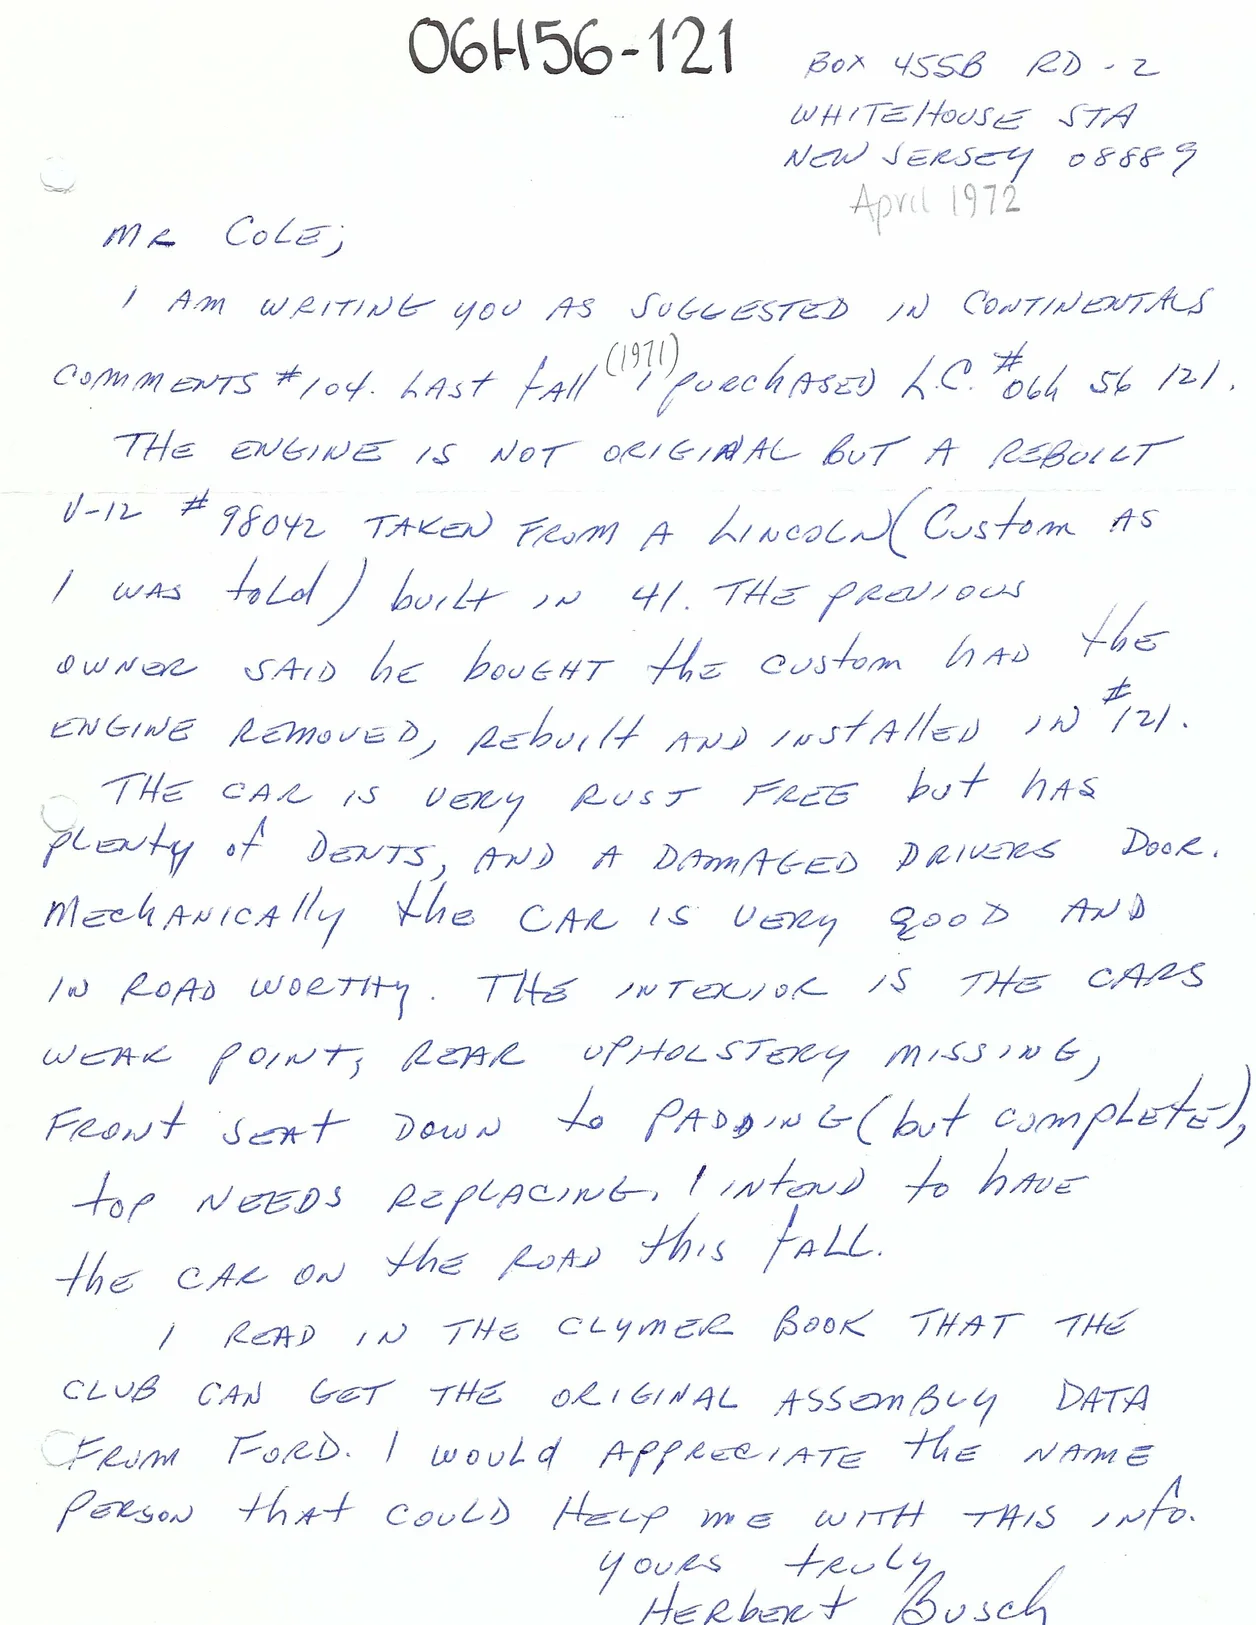 06H56-121
BOX 455B RD-2
WHITEHOUSE STA
NEW JERSEY 08889
April 1972
MR COLE;
I AM WRITING YOU AS SUGGESTED IN CONTINENTALS
COMMENTS #104. LAST FALL (1971) I PURCHASED L.C. #06H 56 121.
THE ENGINE IS NOT ORIGINAL BUT A REBUILT
V-12 #98042 TAKEN FROM A LINCOLN (CUSTOM AS
I WAS TOLD) BUILT IN 41. THE PREVIOUS
OWNER SAID HE BOUGHT THE CUSTOM HAD THE
ENGINE REMOVED, REBUILT AND INSTALLED IN #121.
THE CAR IS VERY RUST FREE BUT HAS
PLENTY OF DENTS, AND A DAMAGED DRIVERS DOOR.
MECHANICALLY THE CAR IS VERY GOOD AND
IN ROAD WORTHY. THE INTERIOR IS THE CARS
WEAK POINT; REAR UPHOLSTERY MISSING,
FRONT SEAT DOWN TO PADDING (BUT COMPLETE),
TOP NEEDS REPLACING. I INTEND TO HAVE
THE CAR ON THE ROAD THIS FALL.
I READ IN THE CLYMER BOOK THAT THE
CLUB CAN GET THE ORIGINAL ASSEMBLY DATA
FROM FORD. I WOULD APPRECIATE THE NAME
PERSON THAT COULD HELP ME WITH THIS INFO.
YOURS TRULY
HERBERT BUSCH